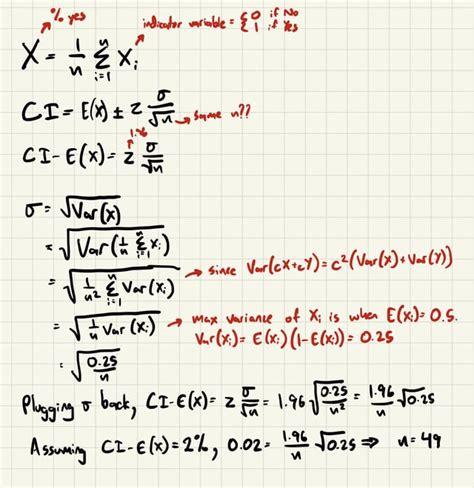 % yes
indicator variable = {0 if No
1 if Yes
X = 1/n Σ_{i=1}^{n} X_i
CI = E(X) ± z σ/√n → same n??
1.96
CI - E(X) = z σ/√n
σ = √Var(X)
= √Var(1/n Σ_{i=1}^{n} X_i)
→ since Var(cX+cY) = c²(Var(X)+Var(Y))
= √(1/n² Σ_{i=1}^{n} Var(X_i))
= √(1/n Var(X_i)) → max variance of X_i is when E(X_i) = 0.5.
Var(X_i) = E(X_i)(1-E(X_i)) = 0.25
= √(0.25/n)
Plugging σ back, CI - E(X) = z σ/√n = 1.96 √(0.25/n²) = 1.96/n √0.25
Assuming CI - E(X) = 2%, 0.02 = 1.96/n √0.25 ⇒ n = 49